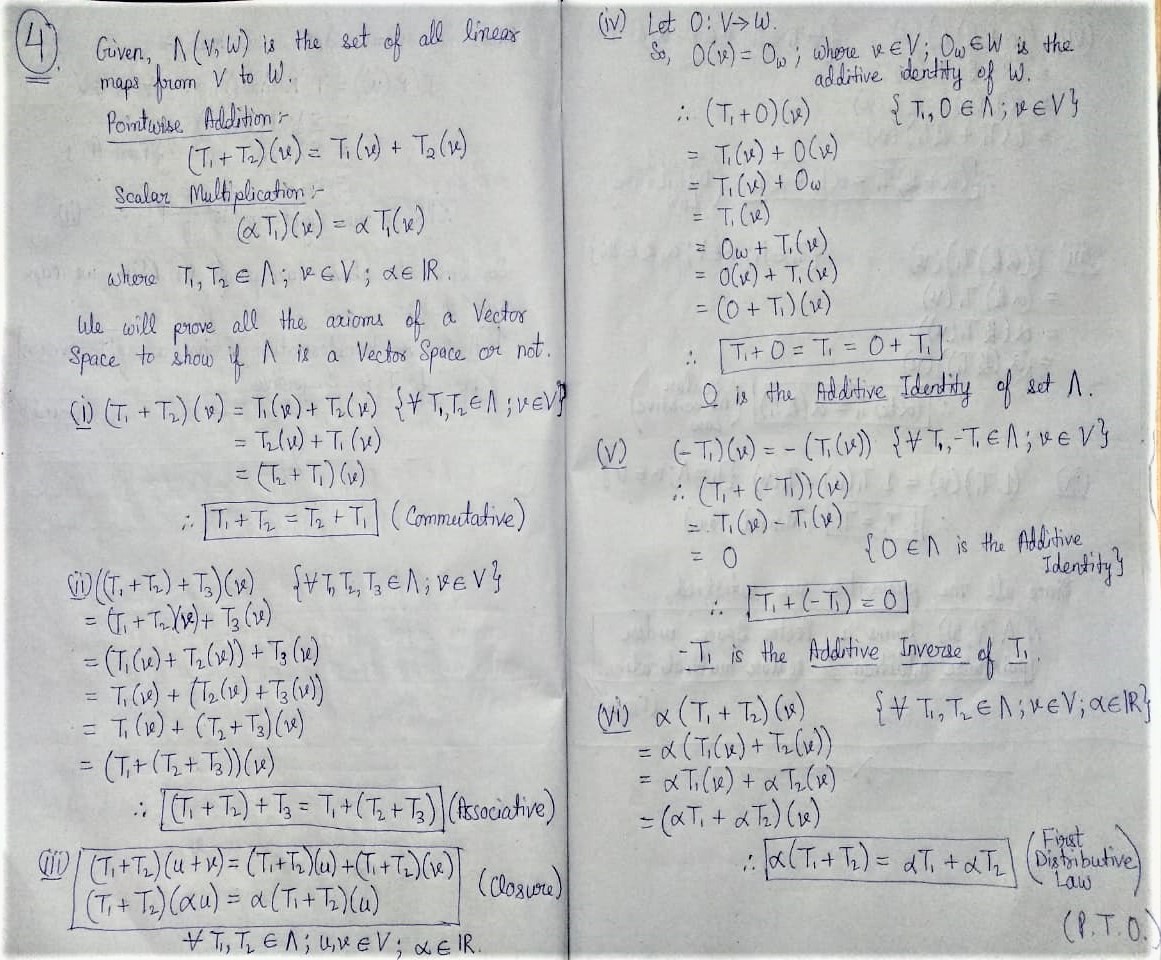 4.
Given, Λ(V,W) is the set of all linear
maps from V to W.
Pointwise Addition:-
(T₁ + T₂)(v) = T₁(v) + T₂(v)
Scalar Multiplication:-
(αT₁)(v) = αT₁(v)
where T₁, T₂ ∈ Λ; v ∈ V; α ∈ ℝ.
We will prove all the axioms of a Vector
Space to show if Λ is a Vector Space or not.
(i) (T₁ + T₂)(v) = T₁(v) + T₂(v) {∀ T₁,T₂ ∈ Λ; v ∈ V}
= T₂(v) + T₁(v)
= (T₂ + T₁)(v)
∴ T₁ + T₂ = T₂ + T₁ (Commutative)
(ii) ((T₁ + T₂) + T₃)(v) {∀ T₁,T₂,T₃ ∈ Λ; v ∈ V}
= (T₁ + T₂)(v) + T₃(v)
= (T₁(v) + T₂(v)) + T₃(v)
= T₁(v) + (T₂(v) + T₃(v))
= T₁(v) + (T₂ + T₃)(v)
= (T₁ + (T₂ + T₃))(v)
∴ (T₁ + T₂) + T₃ = T₁ + (T₂ + T₃) (Associative)
(iii) (T₁+T₂)(u+v) = (T₁+T₂)(u) + (T₁+T₂)(v)
(T₁ + T₂)(αu) = α(T₁+T₂)(u) (Closure)
∀ T₁, T₂ ∈ Λ; u,v ∈ V; α ∈ ℝ.
(iv) Let O: V→W.
So, O(v) = O_w; where v ∈ V; O_w ∈ W is the
additive identity of W.
∴ (T₁+O)(v) {T₁, O ∈ Λ; v ∈ V}
= T₁(v) + O(v)
= T₁(v) + O_w
= T₁(v)
= O_w + T₁(v)
= O(v) + T₁(v)
= (O + T₁)(v)
∴ T₁ + O = T₁ = O + T₁
O is the Additive Identity of set Λ.
(v) (-T₁)(v) = -(T₁(v)) {∀ T₁,-T₁ ∈ Λ; v ∈ V}
∴ (T₁ + (-T₁))(v)
= T₁(v) - T₁(v)
= O {O ∈ Λ is the Additive
Identity}
∴ T₁ + (-T₁) = O
-T₁ is the Additive Inverse of T₁.
(vi) α(T₁ + T₂)(v) {∀ T₁,T₂ ∈ Λ; v ∈ V; α ∈ ℝ}
= α(T₁(v) + T₂(v))
= αT₁(v) + αT₂(v)
= (αT₁ + αT₂)(v)
∴ α(T₁ + T₂) = αT₁ + αT₂ (First
Distributive
Law)
(P.T.O.)